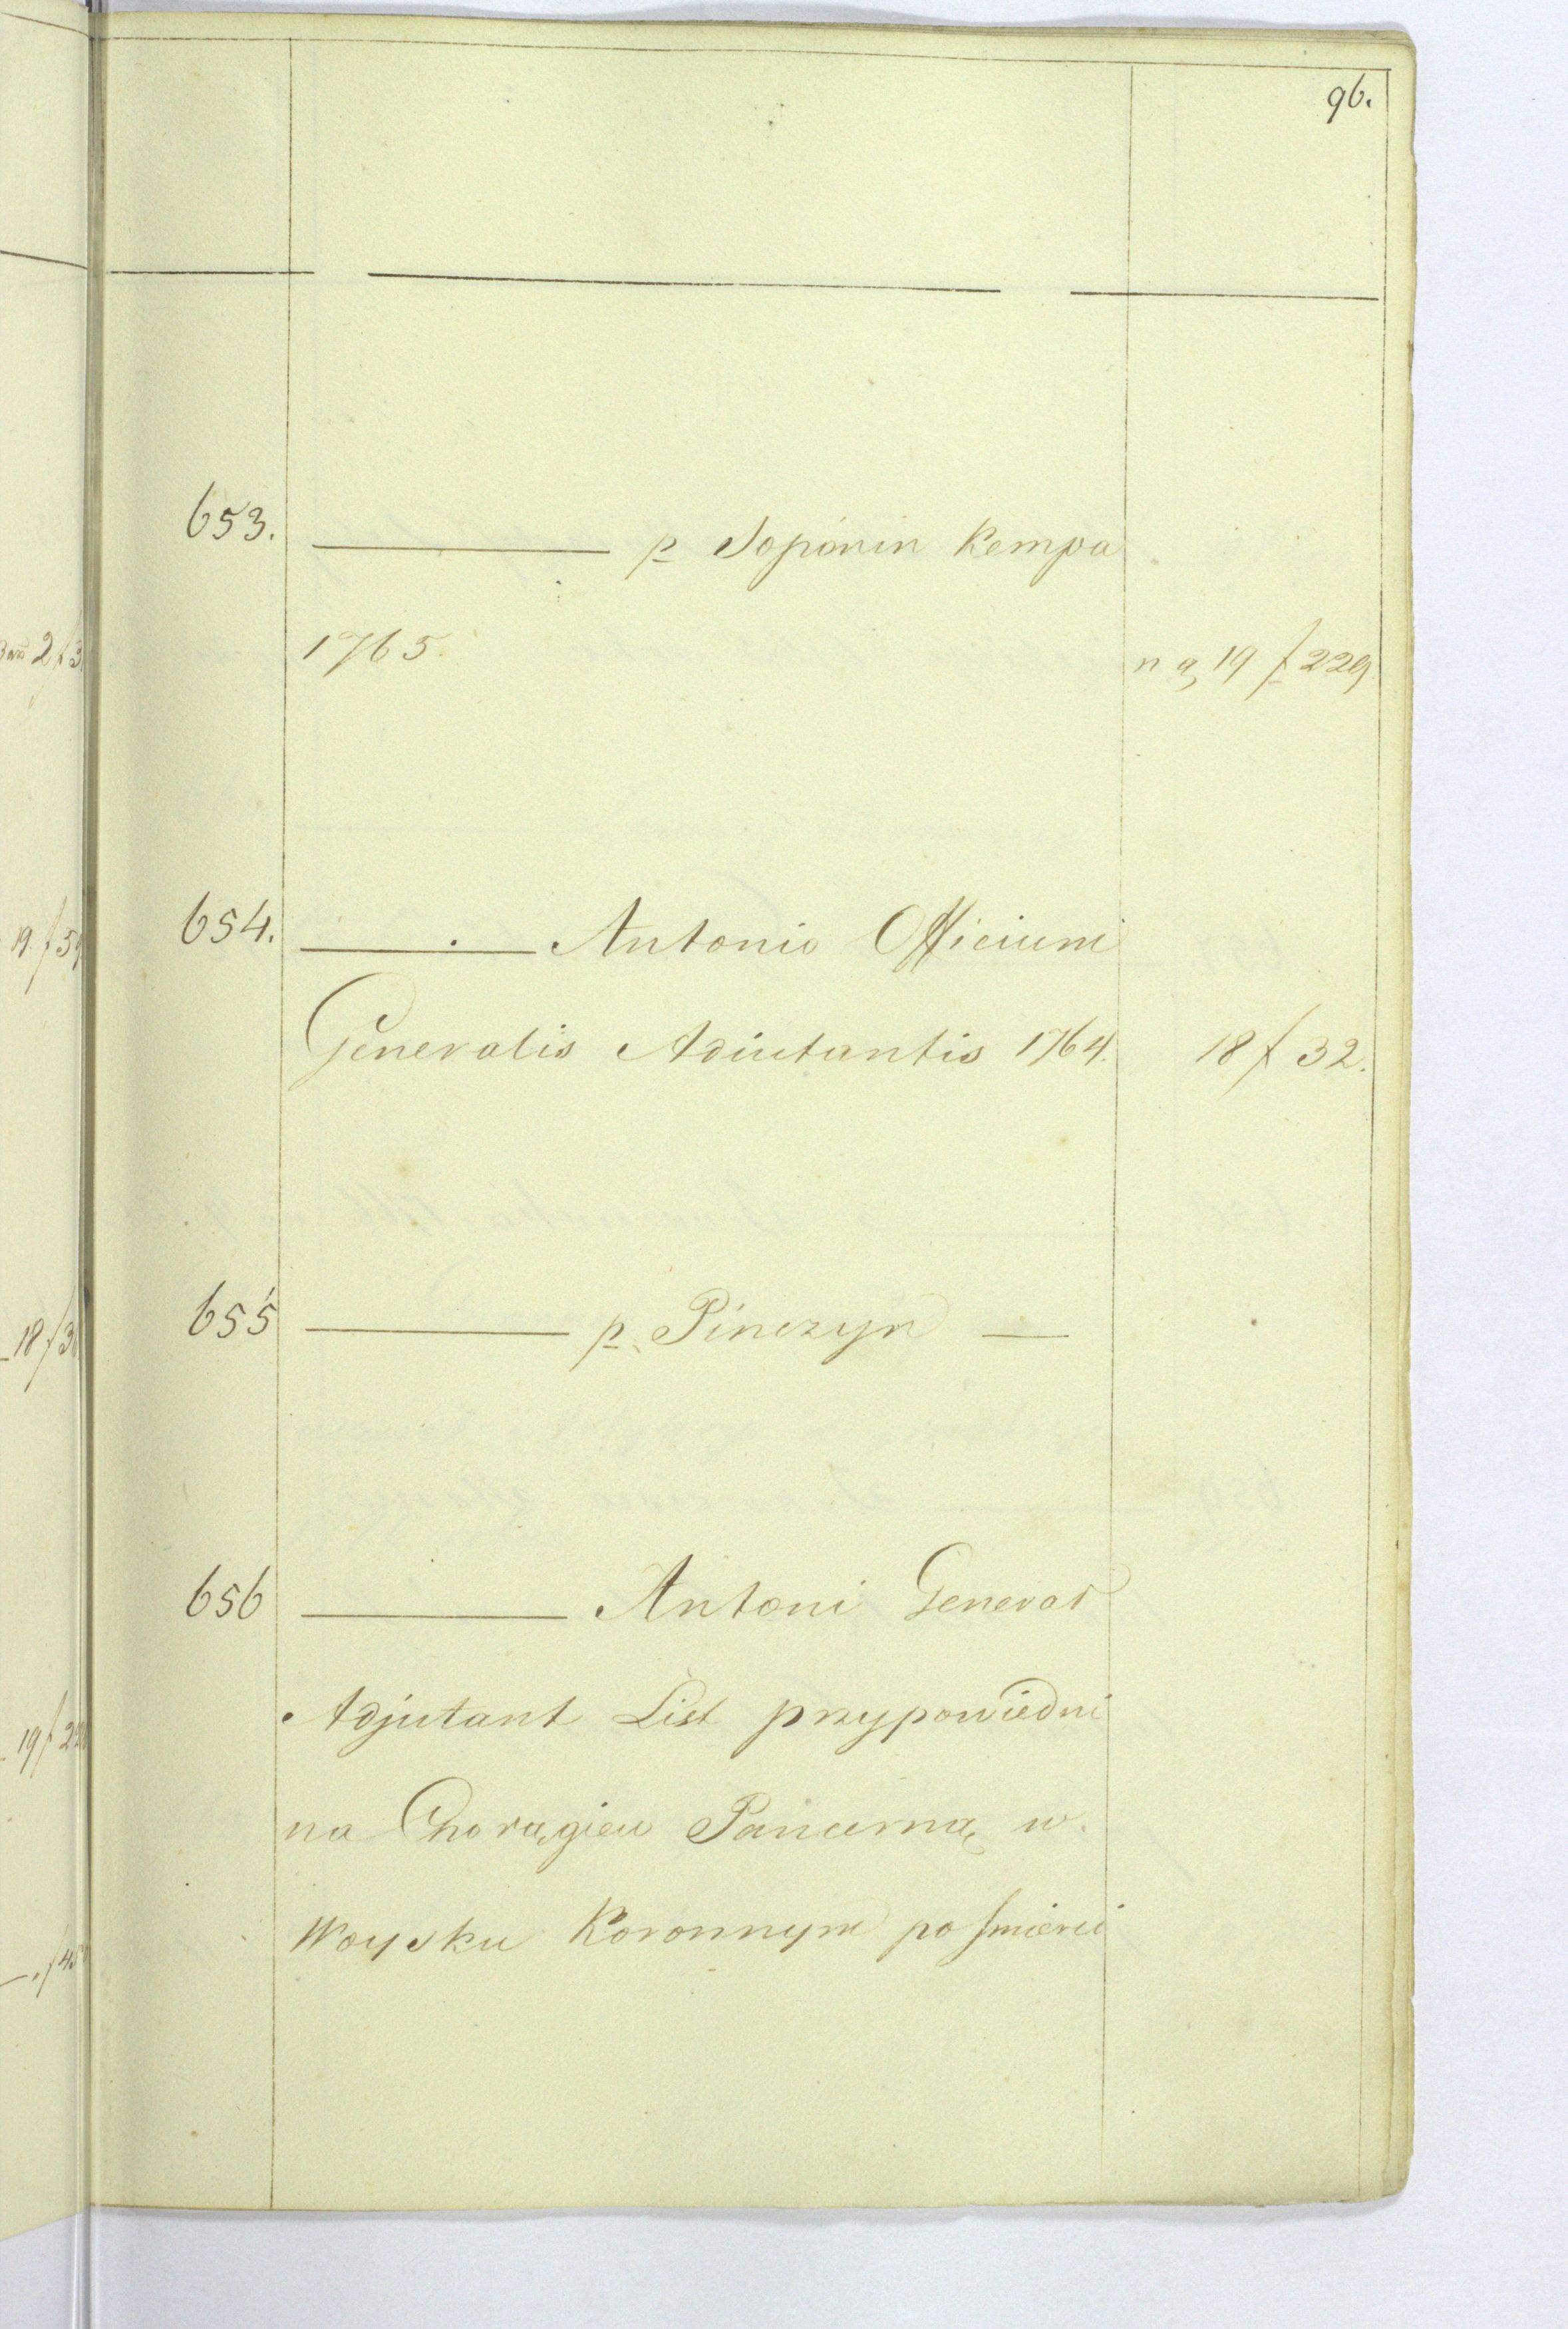 96.
653. ——— p Soponin Kempa
1765. n 9, 19 f 229
654. ——— Antonio Officium
Generalis Adiutantis 1764. 18 f 32.
655 ——— p. Pinczyn —
656 ——— Antoni General
Adjutant List przypowiedni
na Chorągiew Pancerną w.
Woysku Koronnym po śmierci